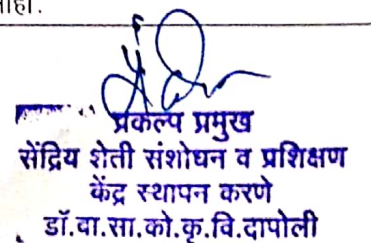 प्रकल्प प्रमुख
सेंद्रिय शेती संशोधन व प्रशिक्षण
केंद्र स्थापन करणे
डॉ.वा.सा.को.कृ.वि.दापोली